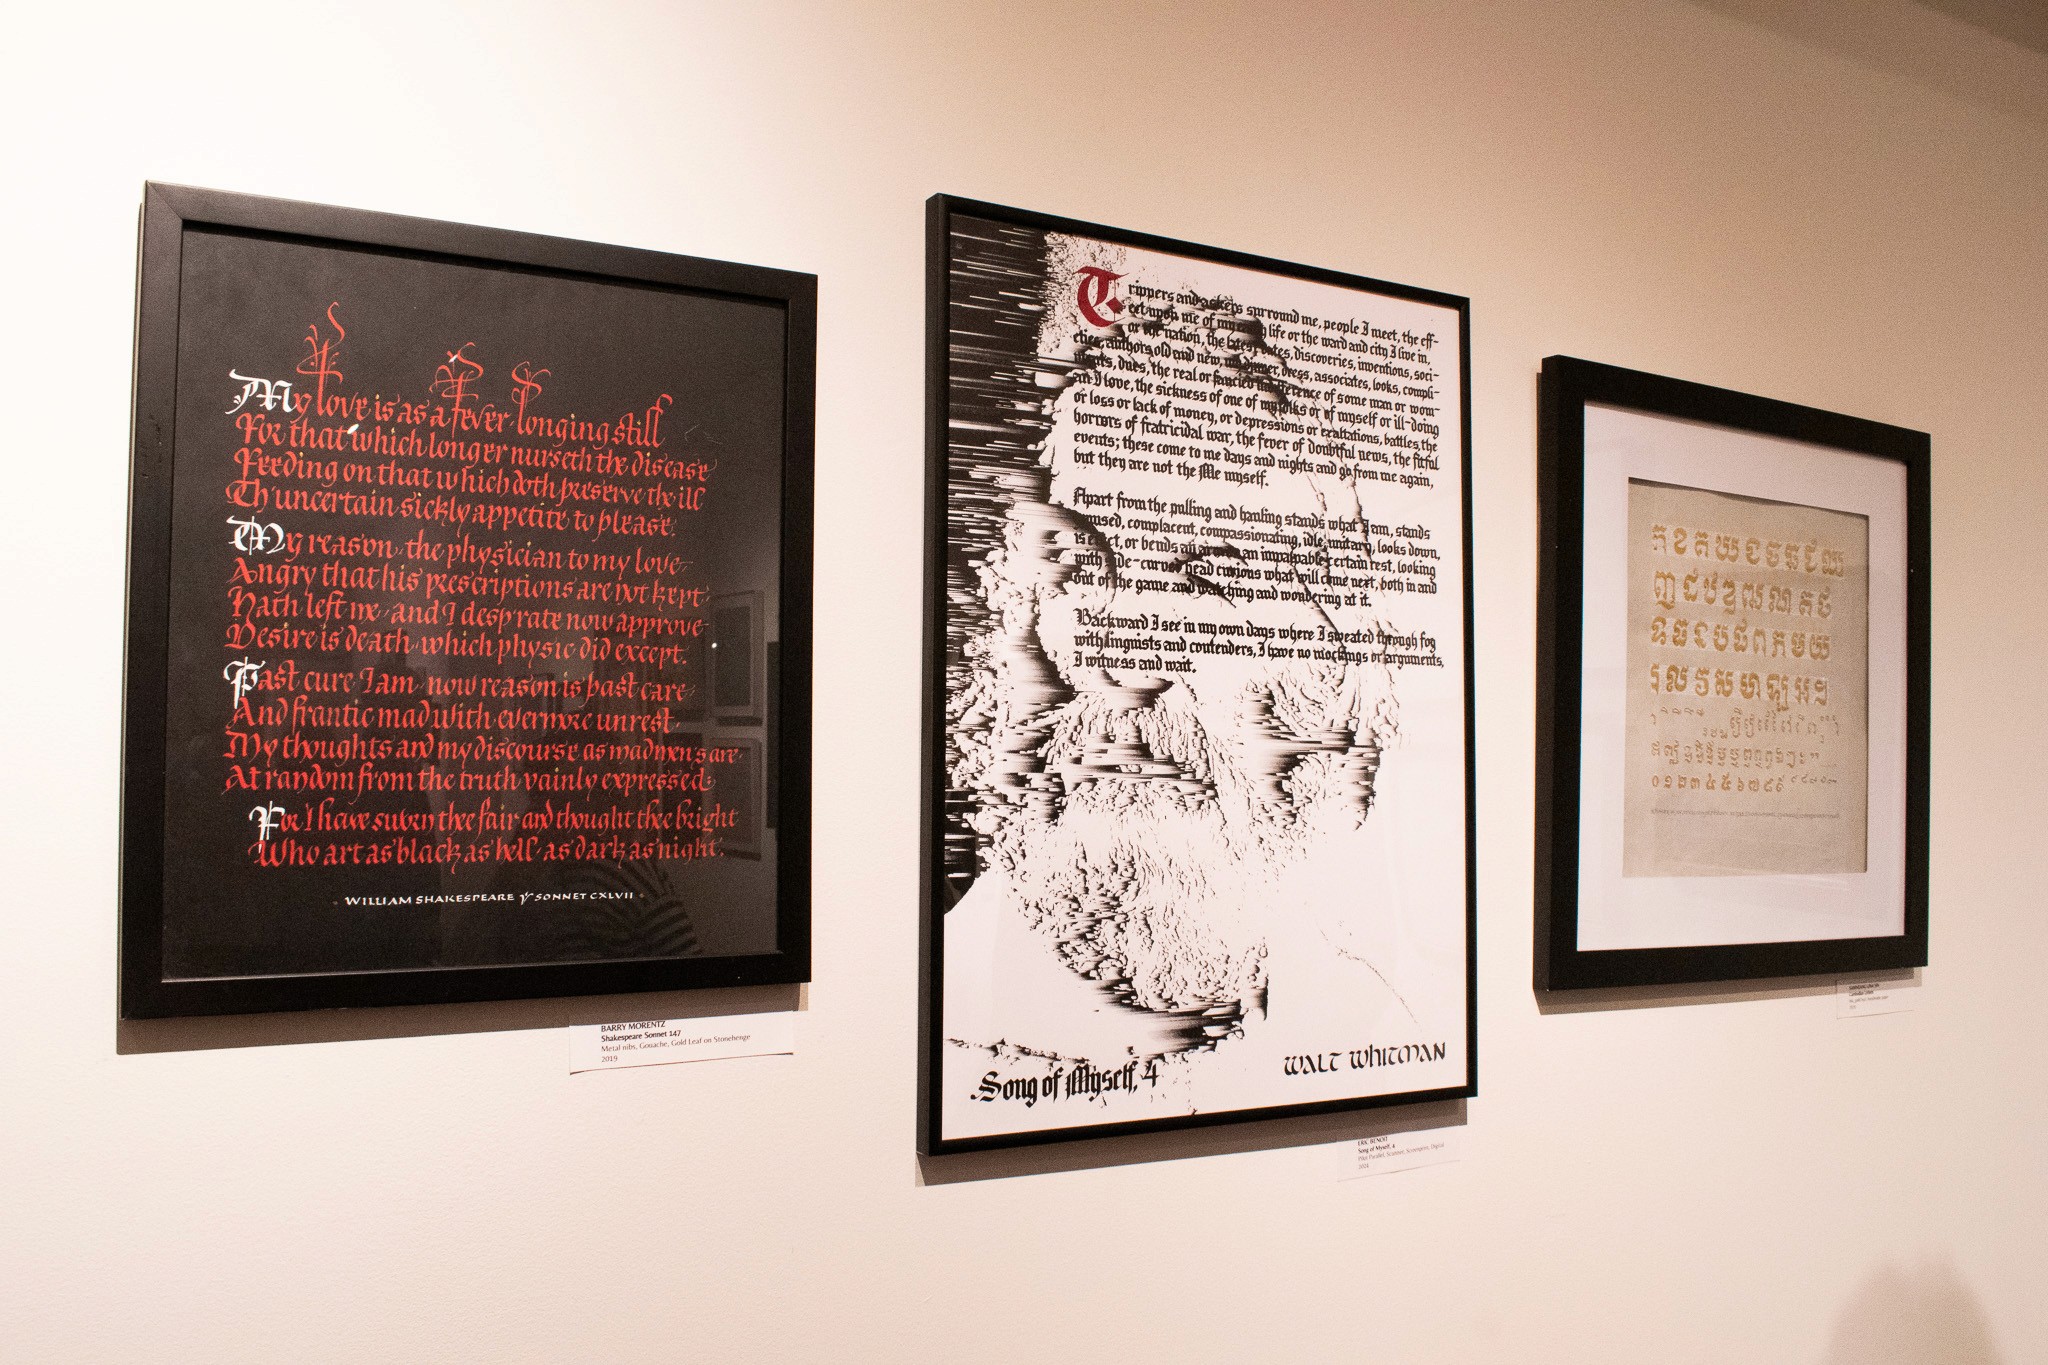 My love is as a fever longing still
For that which longer nurseth the disease
Feeding on that which doth preserve the ill
Th'uncertain sickly appetite to please.
My reason the physician to my love
Angry that his prescriptions are not kept
Hath left me and I desp'rate now approve
Desire is death which physic did except.
Past cure I am now reason is past care
And frantic mad with evermore unrest
My thoughts and my discourse as madmen's are
At random from the truth vainly expressed:
For I have sworn thee fair and thought thee bright
Who art as black as hell as dark as night.
WILLIAM SHAKESPEARE SONNET CXLVII
BARRY MORENTZ
Shakespeare Sonnet 147
Metal nibs, Gouache, Gold Leaf on Stonehenge
2019
Trippers and askers surround me, people I meet, the eff-
ect upon me of my early life or the ward and city I live in,
or the nation, the latest dates, discoveries, inventions, soci-
eties, authors old and new, my dinner, dress, associates, looks, compli-
ments, dues, the real or fancied indifference of some man or wom-
an I love, the sickness of one of my folks or of myself or ill-doing
or loss or lack of money, or depressions or exaltations, battles, the
horrors of fratricidal war, the fever of doubtful news, the fitful
events; these come to me days and nights and go from me again,
but they are not the Me myself.
Apart from the pulling and hauling stands what I am, stands
amused, complacent, compassionating, idle, unitary, looks down,
is erect, or bends an arm on an impalpable certain rest, looking
with side-curved head curious what will come next, both in and
out of the game and watching and wondering at it.
Backward I see in my own days where I sweated through fog
with linguists and contenders, I have no mockings or arguments,
I witness and wait.
Song of Myself, 4
WALT WHITMAN
ERIC BENOIT
Song of Myself, 4
Pilot Parallel, Scanner, Digital
កខគឃងចឆជឈ
ញដឋឌឍណតថ
ទធនបផពភមយ
រលវសហឡអ
០១២៣៤៥៦៧៨៩